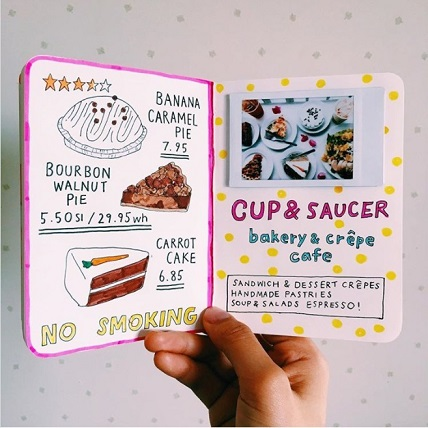 BANANA
CARAMEL
PIE
7.95
BOURBON
WALNUT
PIE
5.50sl / 29.95wh
CARROT
CAKE
6.85
NO SMOKING
CUP & SAUCER
bakery & crêpe
cafe
SANDWICH & DESSERT CRÊPES
HANDMADE PASTRIES
SOUP & SALADS ESPRESSO!